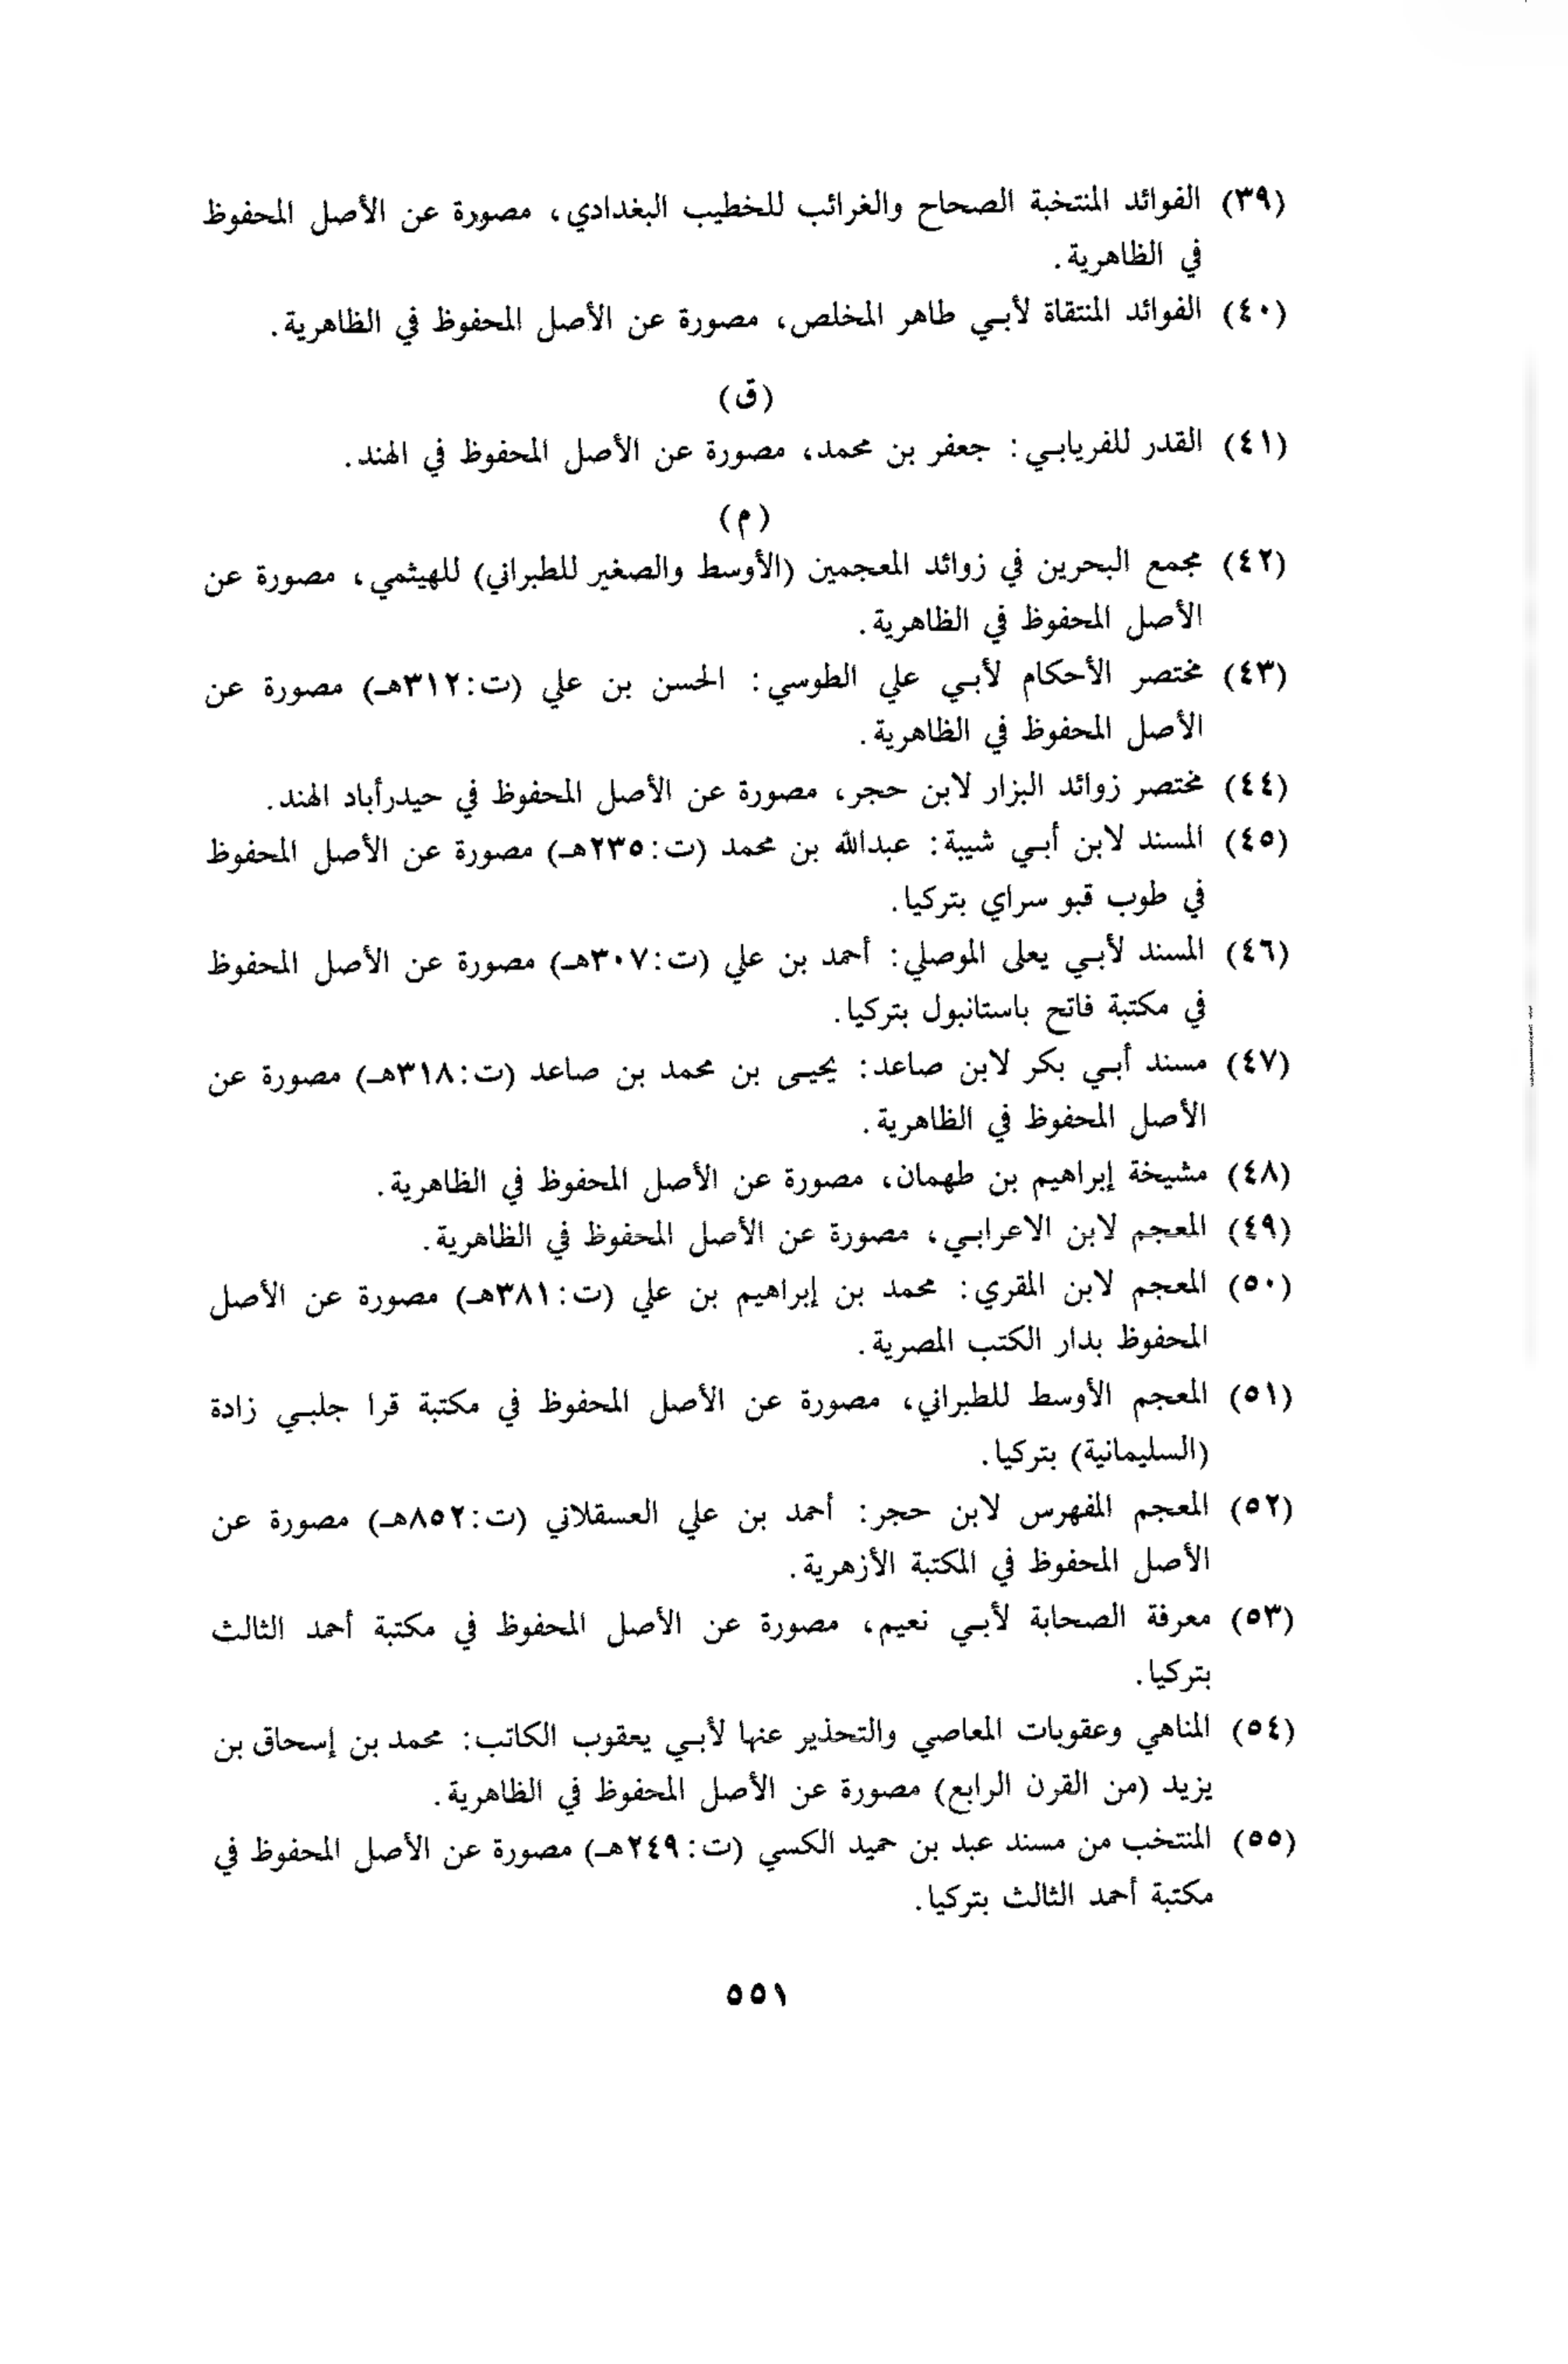 (٣٩) الفوائد المنتخبة الصحاح والغرائب للخطيب البغدادي، مصورة عن الأصل المحفوظ
في الظاهرية.
(٤٠) الفوائد المنتقاة لأبي طاهر المخلص، مصورة عن الأصل المحفوظ في الظاهرية.
(ق)
(٤١) القدر للفريابي: جعفر بن محمد، مصورة عن الأصل المحفوظ في الهند.
(م)
(٤٢) مجمع البحرين في زوائد المعجمين (الأوسط والصغير للطبراني) للهيثمي، مصورة عن
الأصل المحفوظ في الظاهرية.
(٤٣) مختصر الأحكام لأبي علي الطوسي: الحسن بن علي (ت:٣١٢هـ) مصورة عن
الأصل المحفوظ في الظاهرية.
(٤٤) مختصر زوائد البزار لابن حجر، مصورة عن الأصل المحفوظ في حيدرأباد الهند.
(٤٥) المسند لابن أبي شيبة: عبدالله بن محمد (ت:٢٣٥هـ) مصورة عن الأصل المحفوظ
في طوب قبو سراي بتركيا.
(٤٦) المسند لأبي يعلى الموصلي: أحمد بن علي (ت:٣٠٧هـ) مصورة عن الأصل المحفوظ
في مكتبة فاتح باستانبول بتركيا.
(٤٧) مسند أبي بكر لابن صاعد: يحيى بن محمد بن صاعد (ت:٣١٨هـ) مصورة عن
الأصل المحفوظ في الظاهرية.
(٤٨) مشيخة إبراهيم بن طهمان، مصورة عن الأصل المحفوظ في الظاهرية.
(٤٩) المعجم لابن الاعرابي، مصورة عن الأصل المحفوظ في الظاهرية.
(٥٠) المعجم لابن المقري: محمد بن إبراهيم بن علي (ت:٣٨١هـ) مصورة عن الأصل
المحفوظ بدار الكتب المصرية.
(٥١) المعجم الأوسط للطبراني، مصورة عن الأصل المحفوظ في مكتبة قرا جلبي زادة
(السليمانية) بتركيا.
(٥٢) المعجم المفهرس لابن حجر: أحمد بن علي العسقلاني (ت:٨٥٢هـ) مصورة عن
الأصل المحفوظ في المكتبة الأزهرية.
(٥٣) معرفة الصحابة لأبي نعيم، مصورة عن الأصل المحفوظ في مكتبة أحمد الثالث
بتركيا.
(٥٤) المناهي وعقوبات المعاصي والتحذير عنها لأبي يعقوب الكاتب: محمد بن إسحاق بن
يزيد (من القرن الرابع) مصورة عن الأصل المحفوظ في الظاهرية.
(٥٥) المنتخب من مسند عبد بن حميد الكسي (ت:٢٤٩هـ) مصورة عن الأصل المحفوظ في
مكتبة أحمد الثالث بتركيا.
٥٥١